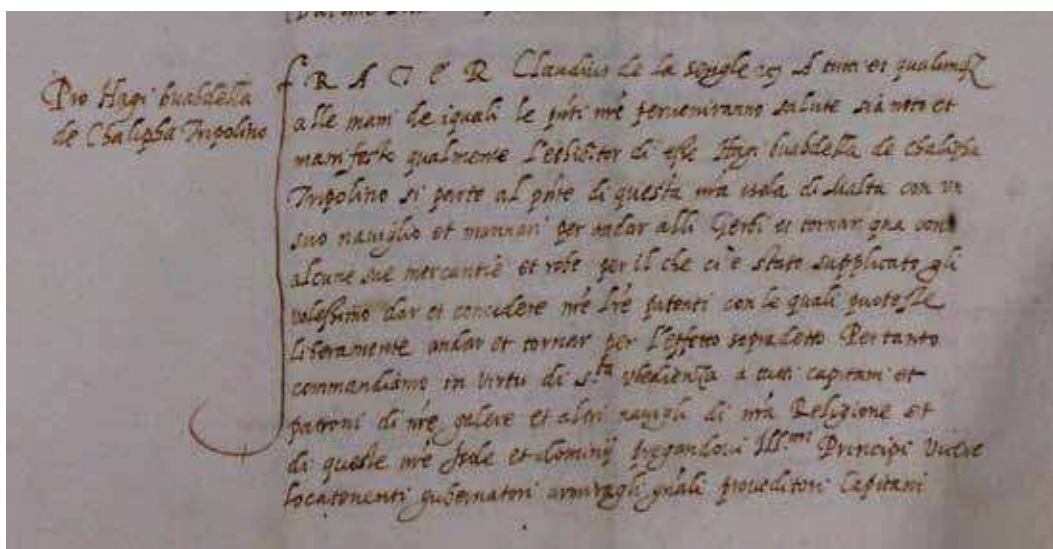 Pro Hagi buabdella
de Chalipha Tripolino
FRATER Claudius de la sengle etc A tutti et qualunq
alle mani de iquali le pnti nre perveniranno salute sia noto et
manifesto qualmente l'exhibitor di esse Hagi buabdella de chalipha
Tripolino si parte al pnte di questa nra isola di Malta con un
suo naviglio et marinari per andar alli Gerbi et tornar qua con
alcune sue mercantie et robe per il che ci è stato supplicato gli
volessimo dar et concedere nre lre patenti con le quali puotesse
liberamente andar et tornar per l'effetto sopradetto Per tanto
commandiamo in virtu di s.ta ubedienza a tutti capitani et
patroni di nre galere et altri navigli di nra Religione et
di queste nre Isole et dominij pregandovi Ill.mi Principi Vicere
locatenenti gubernatori armiragli gnali proveditori Capitani